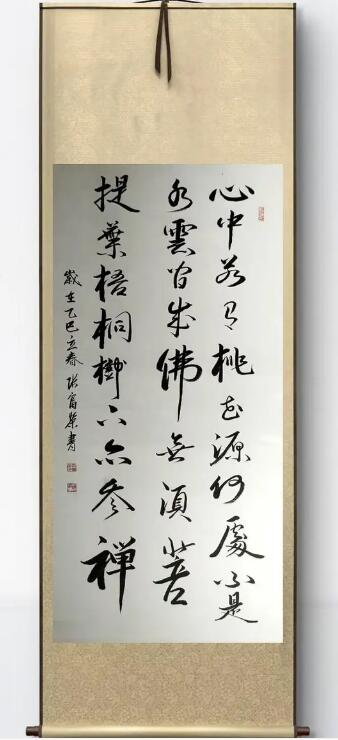 心中若有桃花源何處不是
水雲間成佛無須菩
提葉梧桐樹下亦參禪
歲在乙巳立春張富榮書